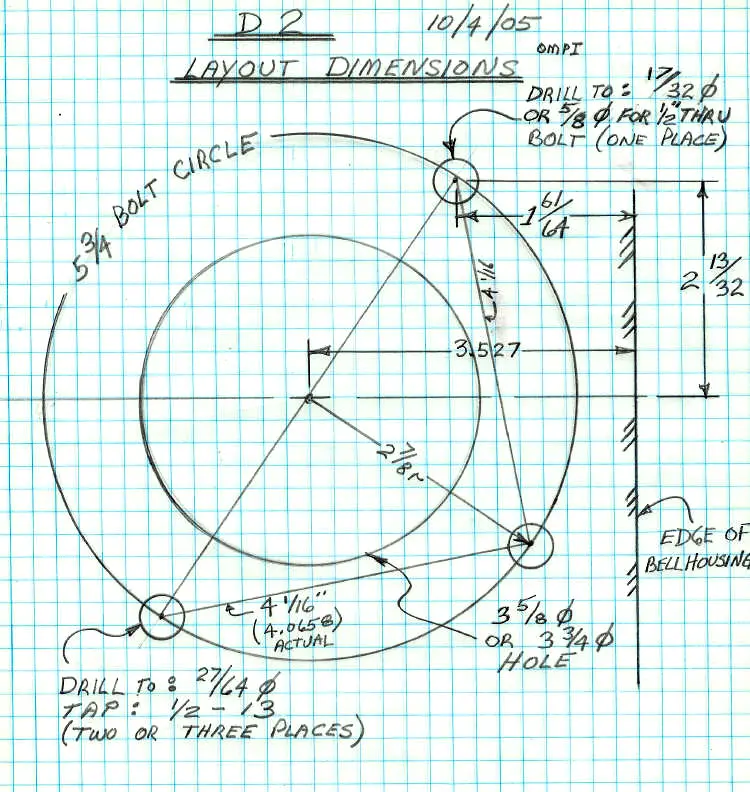 D2
10/4/05
OMPI
LAYOUT DIMENSIONS
DRILL TO: 17/32 Ø
OR 5/8 Ø FOR 1/2" THRU
BOLT (ONE PLACE)
5 3/4 BOLT CIRCLE
1 61/64
2 13/32
4 1/16
3.527
2 7/8 r
EDGE OF
BELLHOUSING
4 1/16"
(4.0658)
ACTUAL
3 5/8 Ø
OR 3 3/4 Ø
HOLE
DRILL TO: 27/64 Ø
TAP: 1/2 - 13
(TWO OR THREE PLACES)